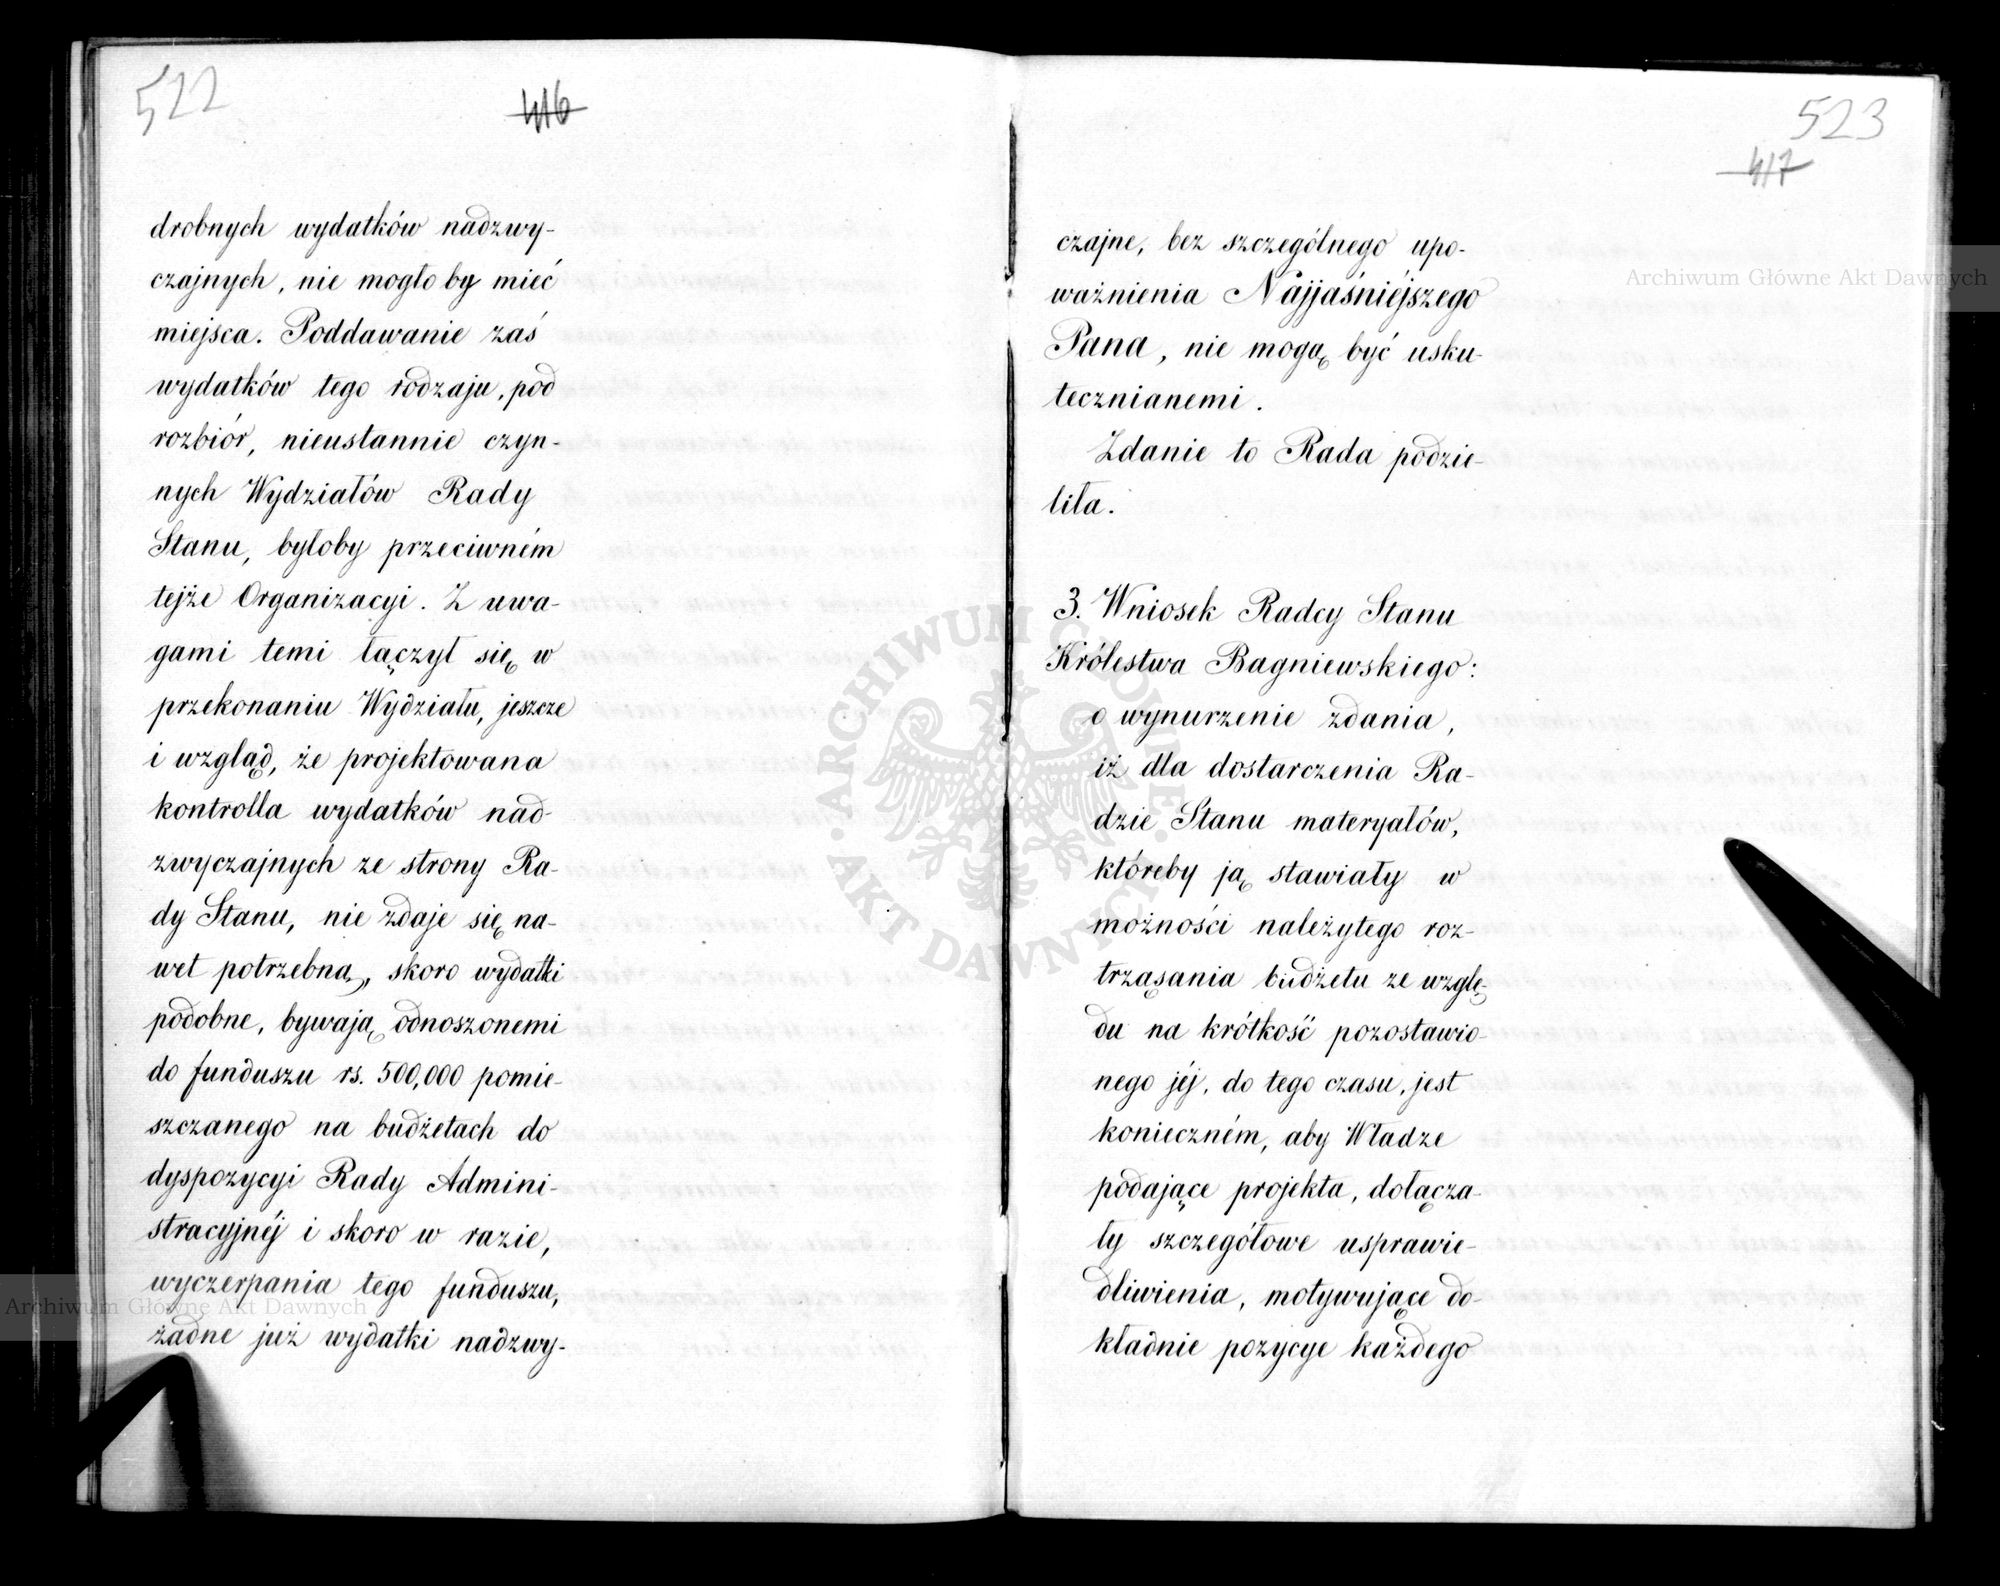 522
416
drobnych wydatków nadzwy-
czajnych, nie mogłoby mieć
miejsca. Poddawanie zaś
wydatków tego rodzaju, pod
rozbiór, nieustannie czyn-
nych Wydziałów Rady
Stanu, byłoby przeciwném
tejże Organizacyi. Z uwa-
gami temi łączył się w
przekonaniu Wydziału, jeszcze
i wzgląd, że projektowana
kontrolla wydatków nad-
zwyczajnych ze strony Ra-
dy Stanu, nie zdaje się na-
wet potrzebną, skoro wydatki
podobne, bywają odnoszonemi
do funduszu rs. 500,000 pomie-
szczanego na budżetach do
dyspozycyi Rady Admini-
stracyjnéj i skoro w razie,
wyczerpania tego funduszu,
żadne już wydatki nadzwy-
523
417
czajne, bez szczególnego upo-
ważnienia Najjaśniéjszego
Pana, nie mogą być usku-
tecznianemi.
Zdanie to Rada podzie-
liła.
3. Wniosek Radcy Stanu
Królestwa Bagniewskiego:
o wynurzenie zdania,
iż dla dostarczenia Ra-
dzie Stanu materyałów,
któreby ją stawiały w
możności należytego roz-
trząsania budżetu ze wzglę-
du na krótkość pozostawio-
nego jéj, do tego czasu, jest
konieczném, aby Władze
podające projekta, dołącza-
ły szczegółowe usprawie-
dliwienia, motywujące do-
kładnie pozycye każdego
Archiwum Główne Akt Dawnych
Archiwum Główne Akt Dawnych
ARCHIWUM GŁÓWNE
AKT DAWNYCH